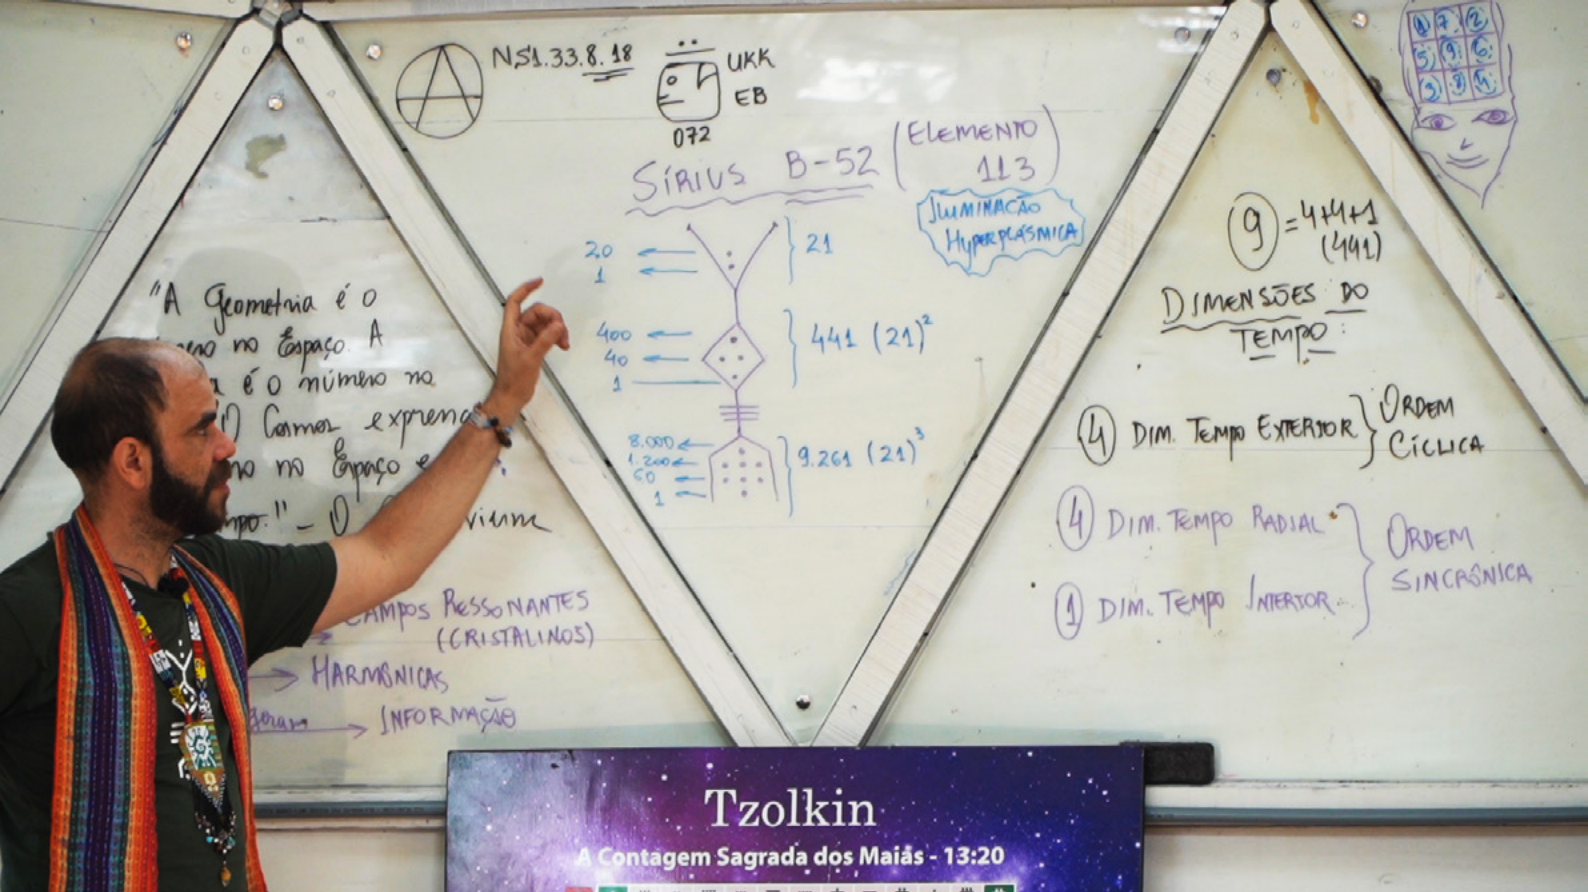 NS1.33.8.18
UKK
EB
072
SÍRIUS B-52 (ELEMENTO
113)
ILUMINAÇÃO
HYPERPLÁSMICA
20
1
21
400
40
1
441 (21)²
8.000
1.200
60
1
9.261 (21)³
"A Geometria é o
no Espaço. A
é o número no
Cosmos
no Espaço e
CAMPOS RESSONANTES
(CRISTALINOS)
HARMÔNICAS
INFORMAÇÃO
1 7 2
5 9 6
3 8 4
9 = 4+4+1
(441)
DIMENSÕES DO
TEMPO:
4 DIM. TEMPO EXTERIOR
ORDEM
CÍCLICA
4 DIM. TEMPO RADIAL
1 DIM. TEMPO INTERIOR
ORDEM
SINCRÔNICA
Tzolkin
A Contagem Sagrada dos Maias - 13:20